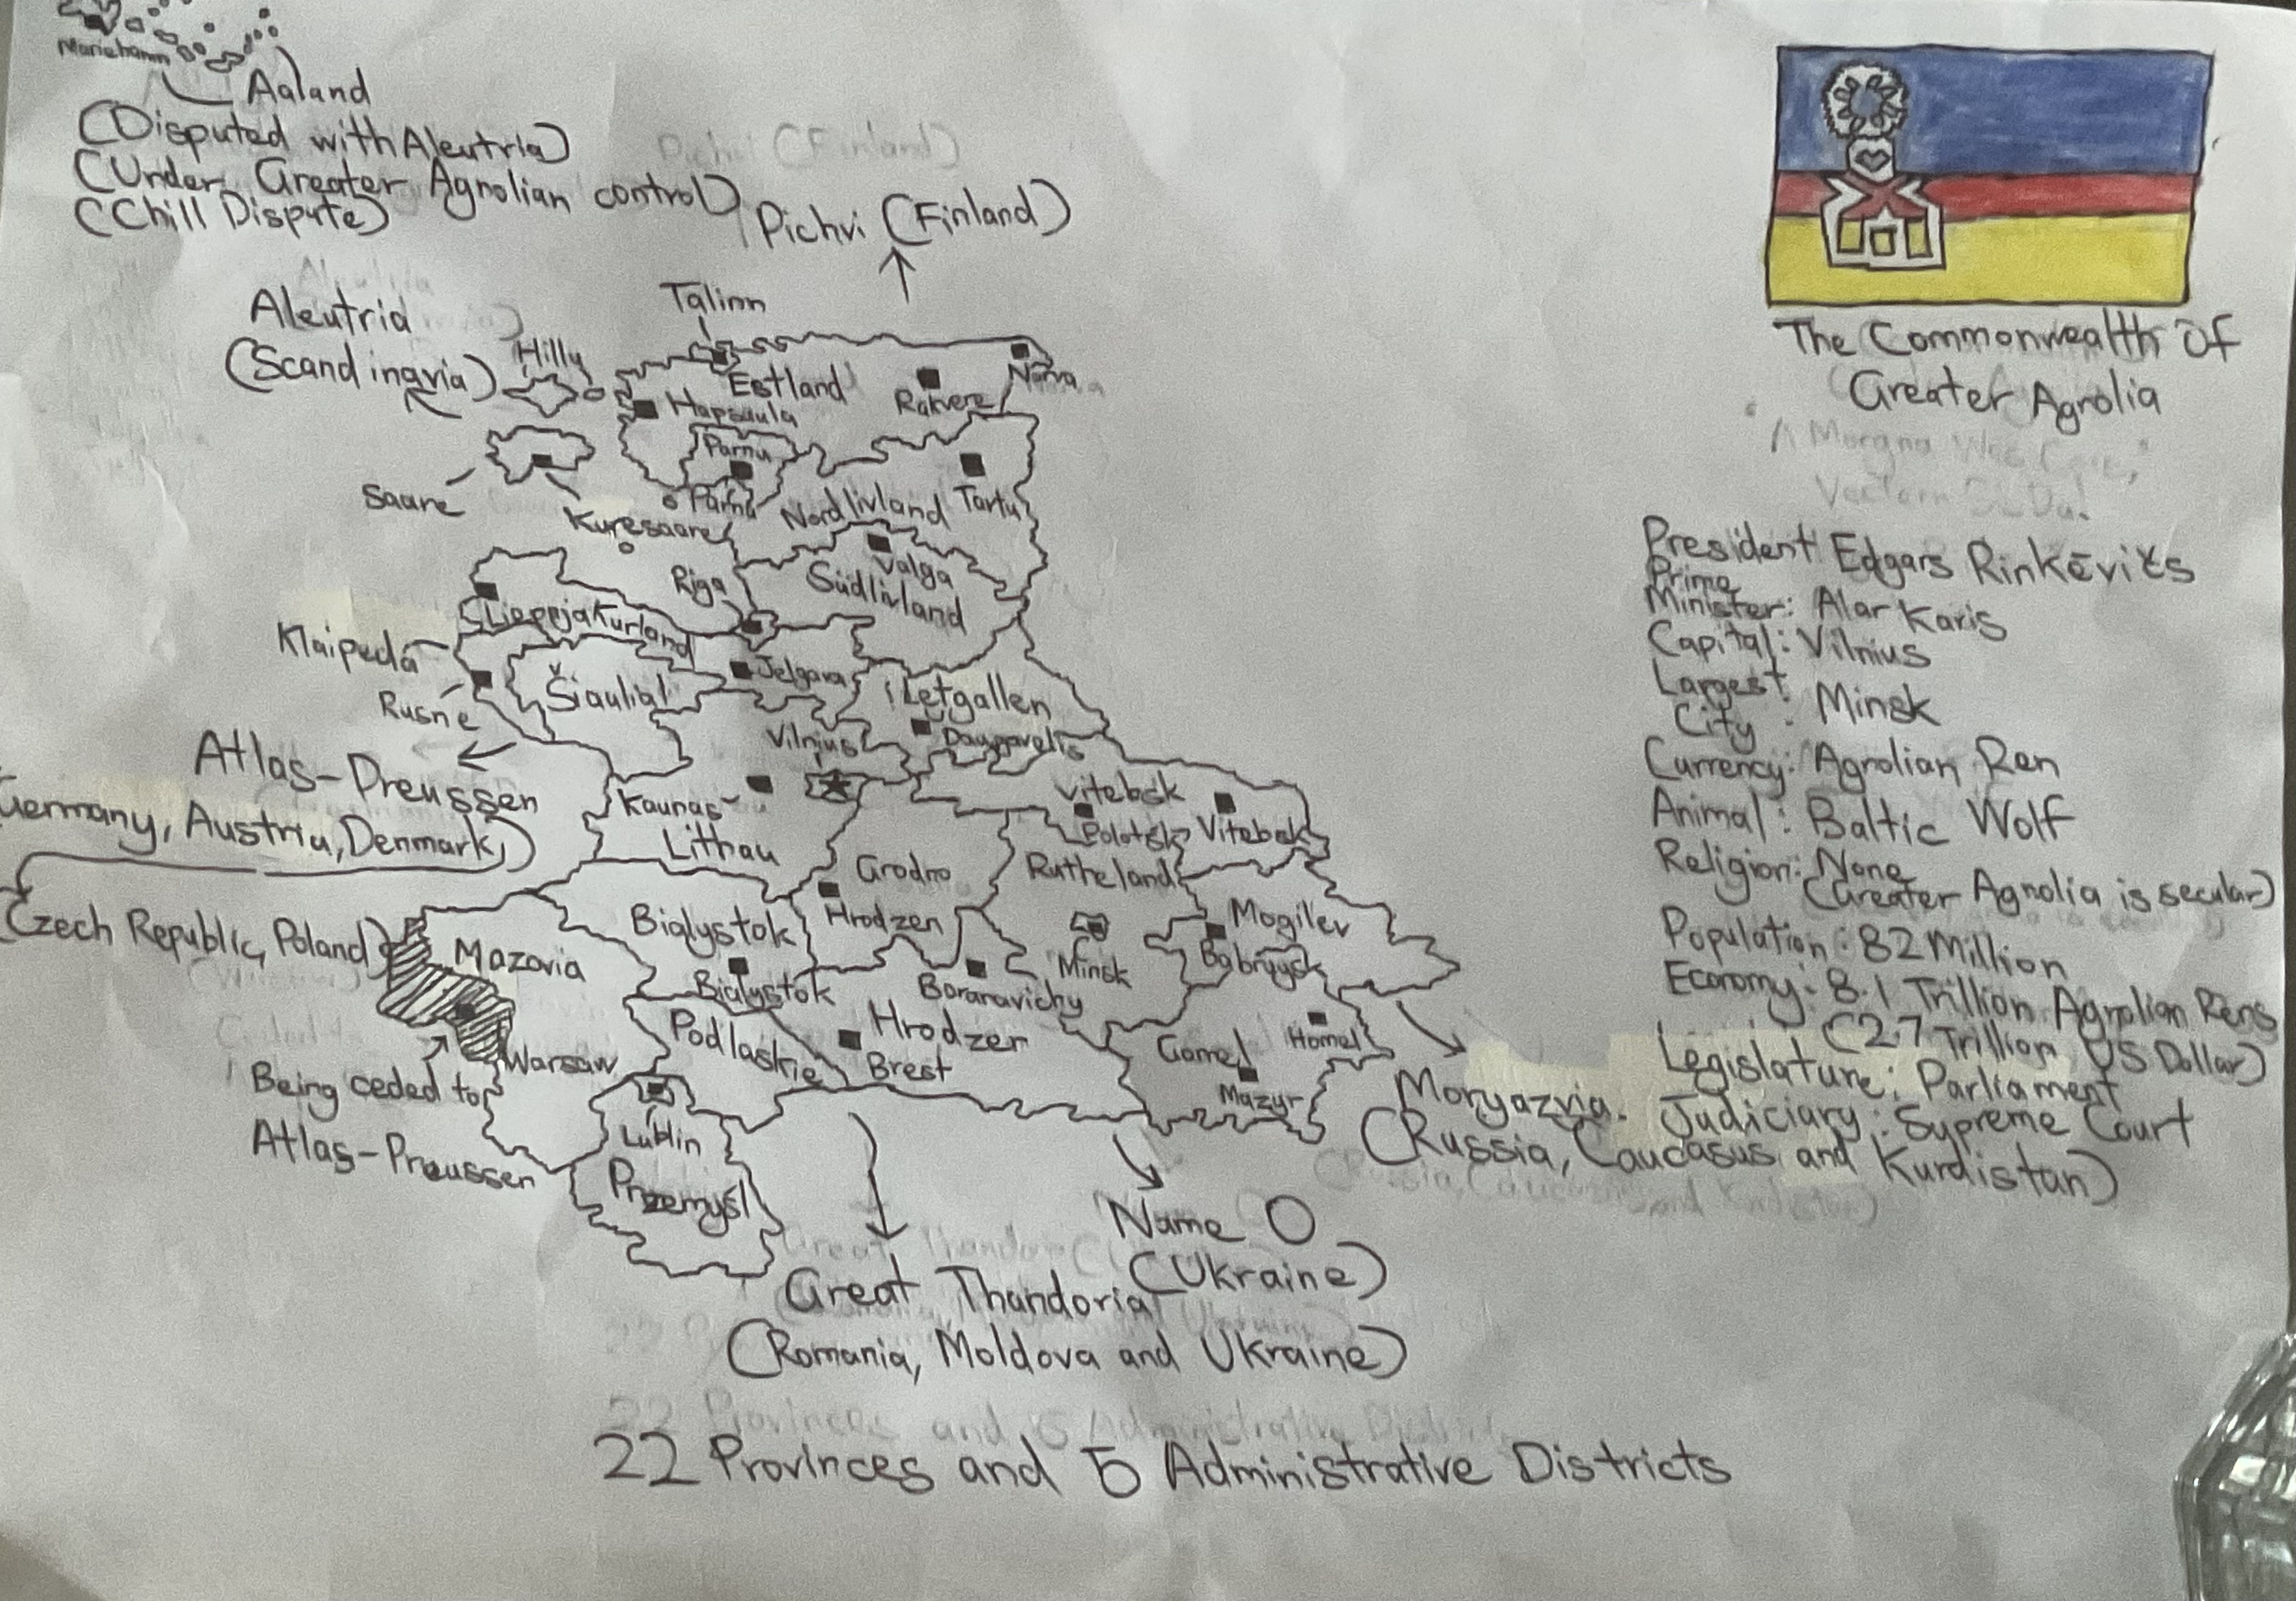 Mariehamn
Aaland
(Disputed with Aleutria)
(Under Greater Agnolian control)
(Chill Dispute)
Pichvi (Finland)
Talinn
Aleutria
(Scandinavia)
Hilly
Estland
Narva
Rakvere
Hapsaula
Parnu
Parnu
Saare
Kuresaare
Nordlivland
Tartu
Valga
Riga
Südlivland
Lieppja
Kurland
Klaipeda
Šiauliai
Jelgava
Rusne
Letgallen
Daugavelis
Vilnius
Atlas-Preussen
Germany, Austria, Denmark,)
(Czech Republic, Poland)
Kaunas
Lithau
Vitebsk
Polotsk
Vitebsk
Grodno
Hrodzen
Rutheland
Bialystok
Bialystok
Mogilev
Babruysk
Minsk
Baranavichy
Mazovia
Warsaw
Being ceded to
Atlas-Preussen
Podlaskie
Hrodzer
Brest
Gomel
Homel
Mazyr
Lublin
Przemyśl
Moryazvia
(Russia, Caucasus and Kurdistan)
Name O
(Ukraine)
Great Thandoria
(Romania, Moldova and Ukraine)
22 Provinces and 5 Administrative Districts
The Commonwealth Of
Greater Agrolia
President Edgars Rinkēvičs
Prime
Minister: Alar Karis
Capital: Vilnius
Largest
City : Minsk
Currency: Agrolian Ren
Animal: Baltic Wolf
Religion: None
(Greater Agnolia is secular)
Population: 82 Million
Economy: 8.1 Trillion Agrolian Rens
(2.7 Trillion US Dollar)
Legislature: Parliament
Judiciary: Supreme Court